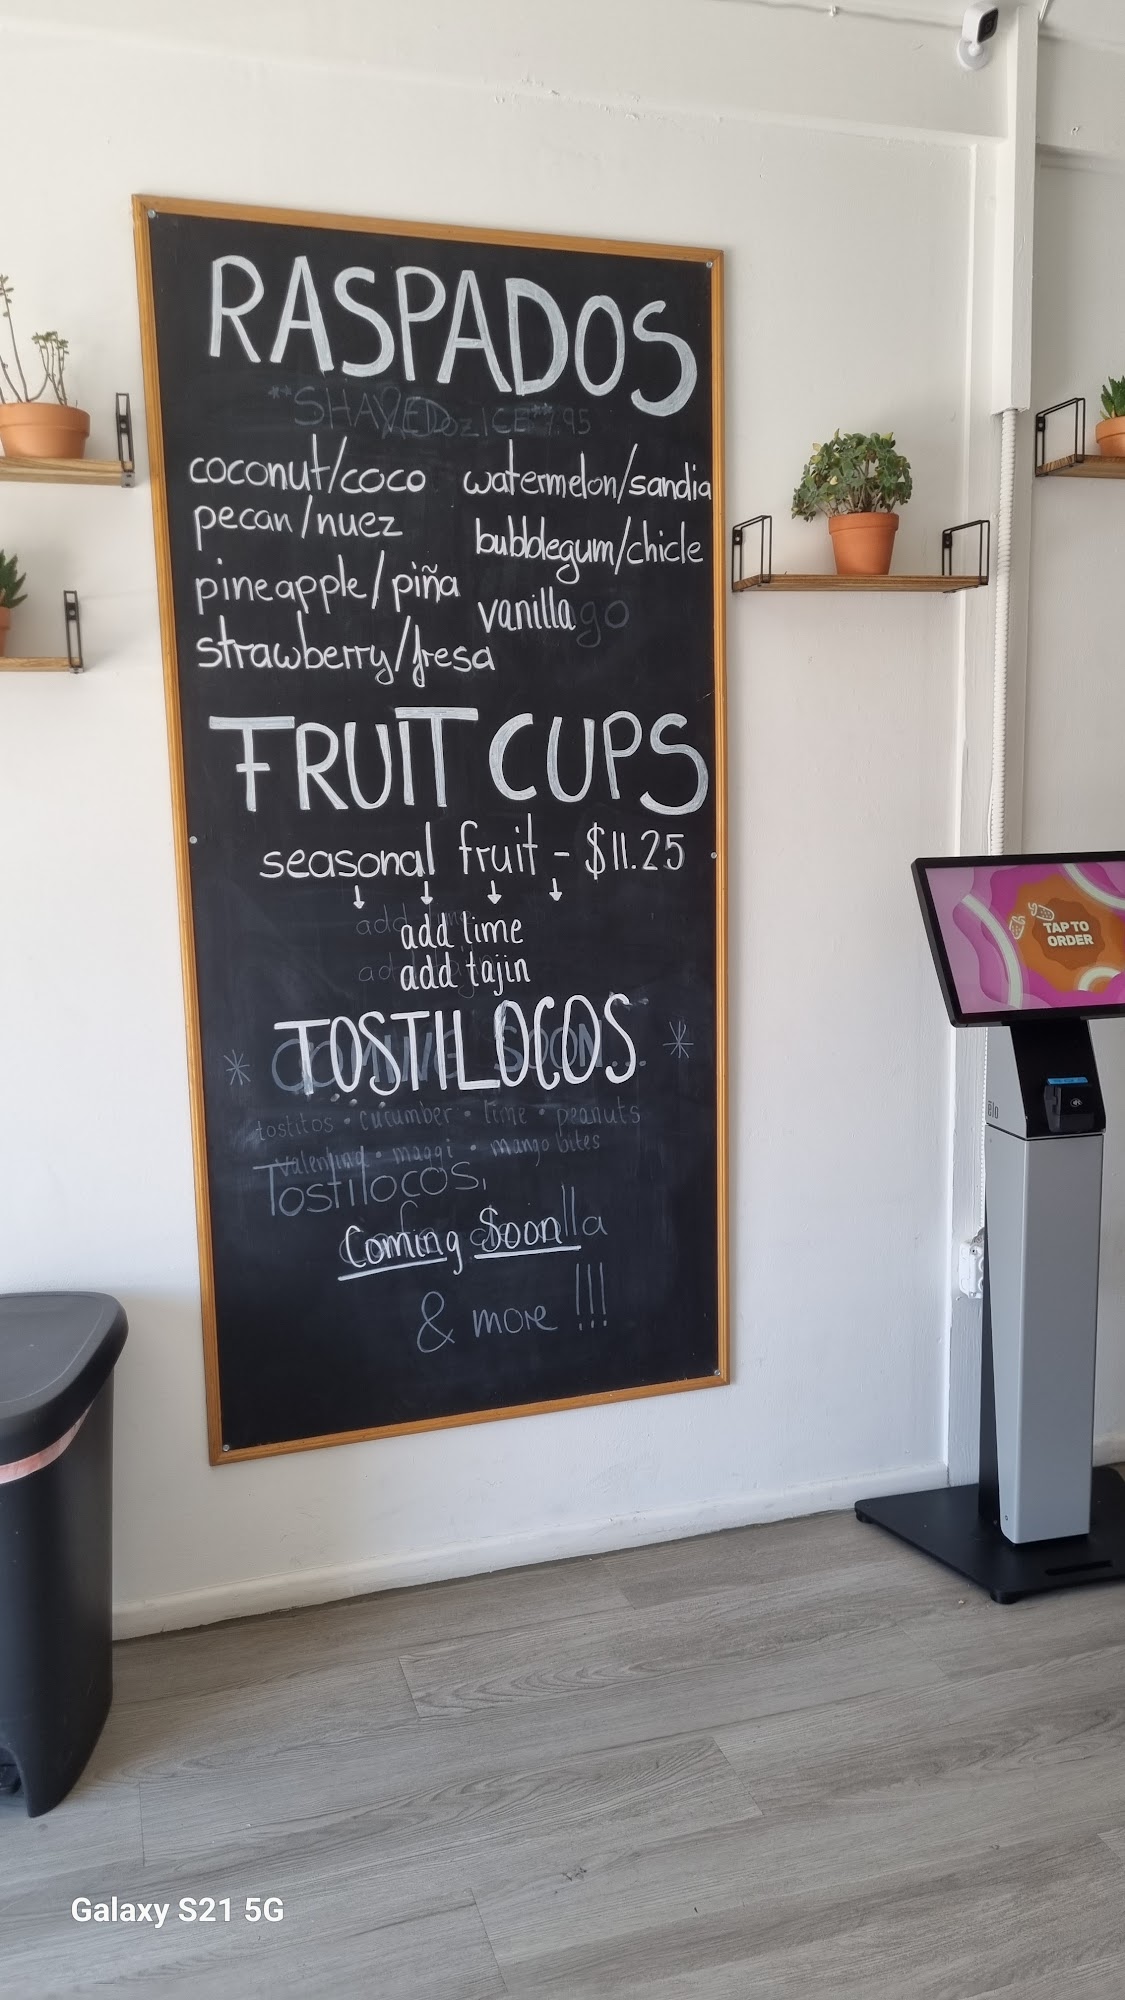 RASPADOS
**SHAVED ICE** 7.95
coconut/coco
pecan/nuez
pineapple/piña
strawberry/fresa
watermelon/sandia
bubblegum/chicle
vanilla go
FRUIT CUPS
seasonal fruit - $11.25
add lime
add tajin
TOSTILOCOS
* COMING SOON... *
tostitos • cucumber • lime • peanuts
valentina • maggi • mango bites
Tostilocos,
Coming Soon
& more !!!
TAP TO
ORDER
elo
Galaxy S21 5G